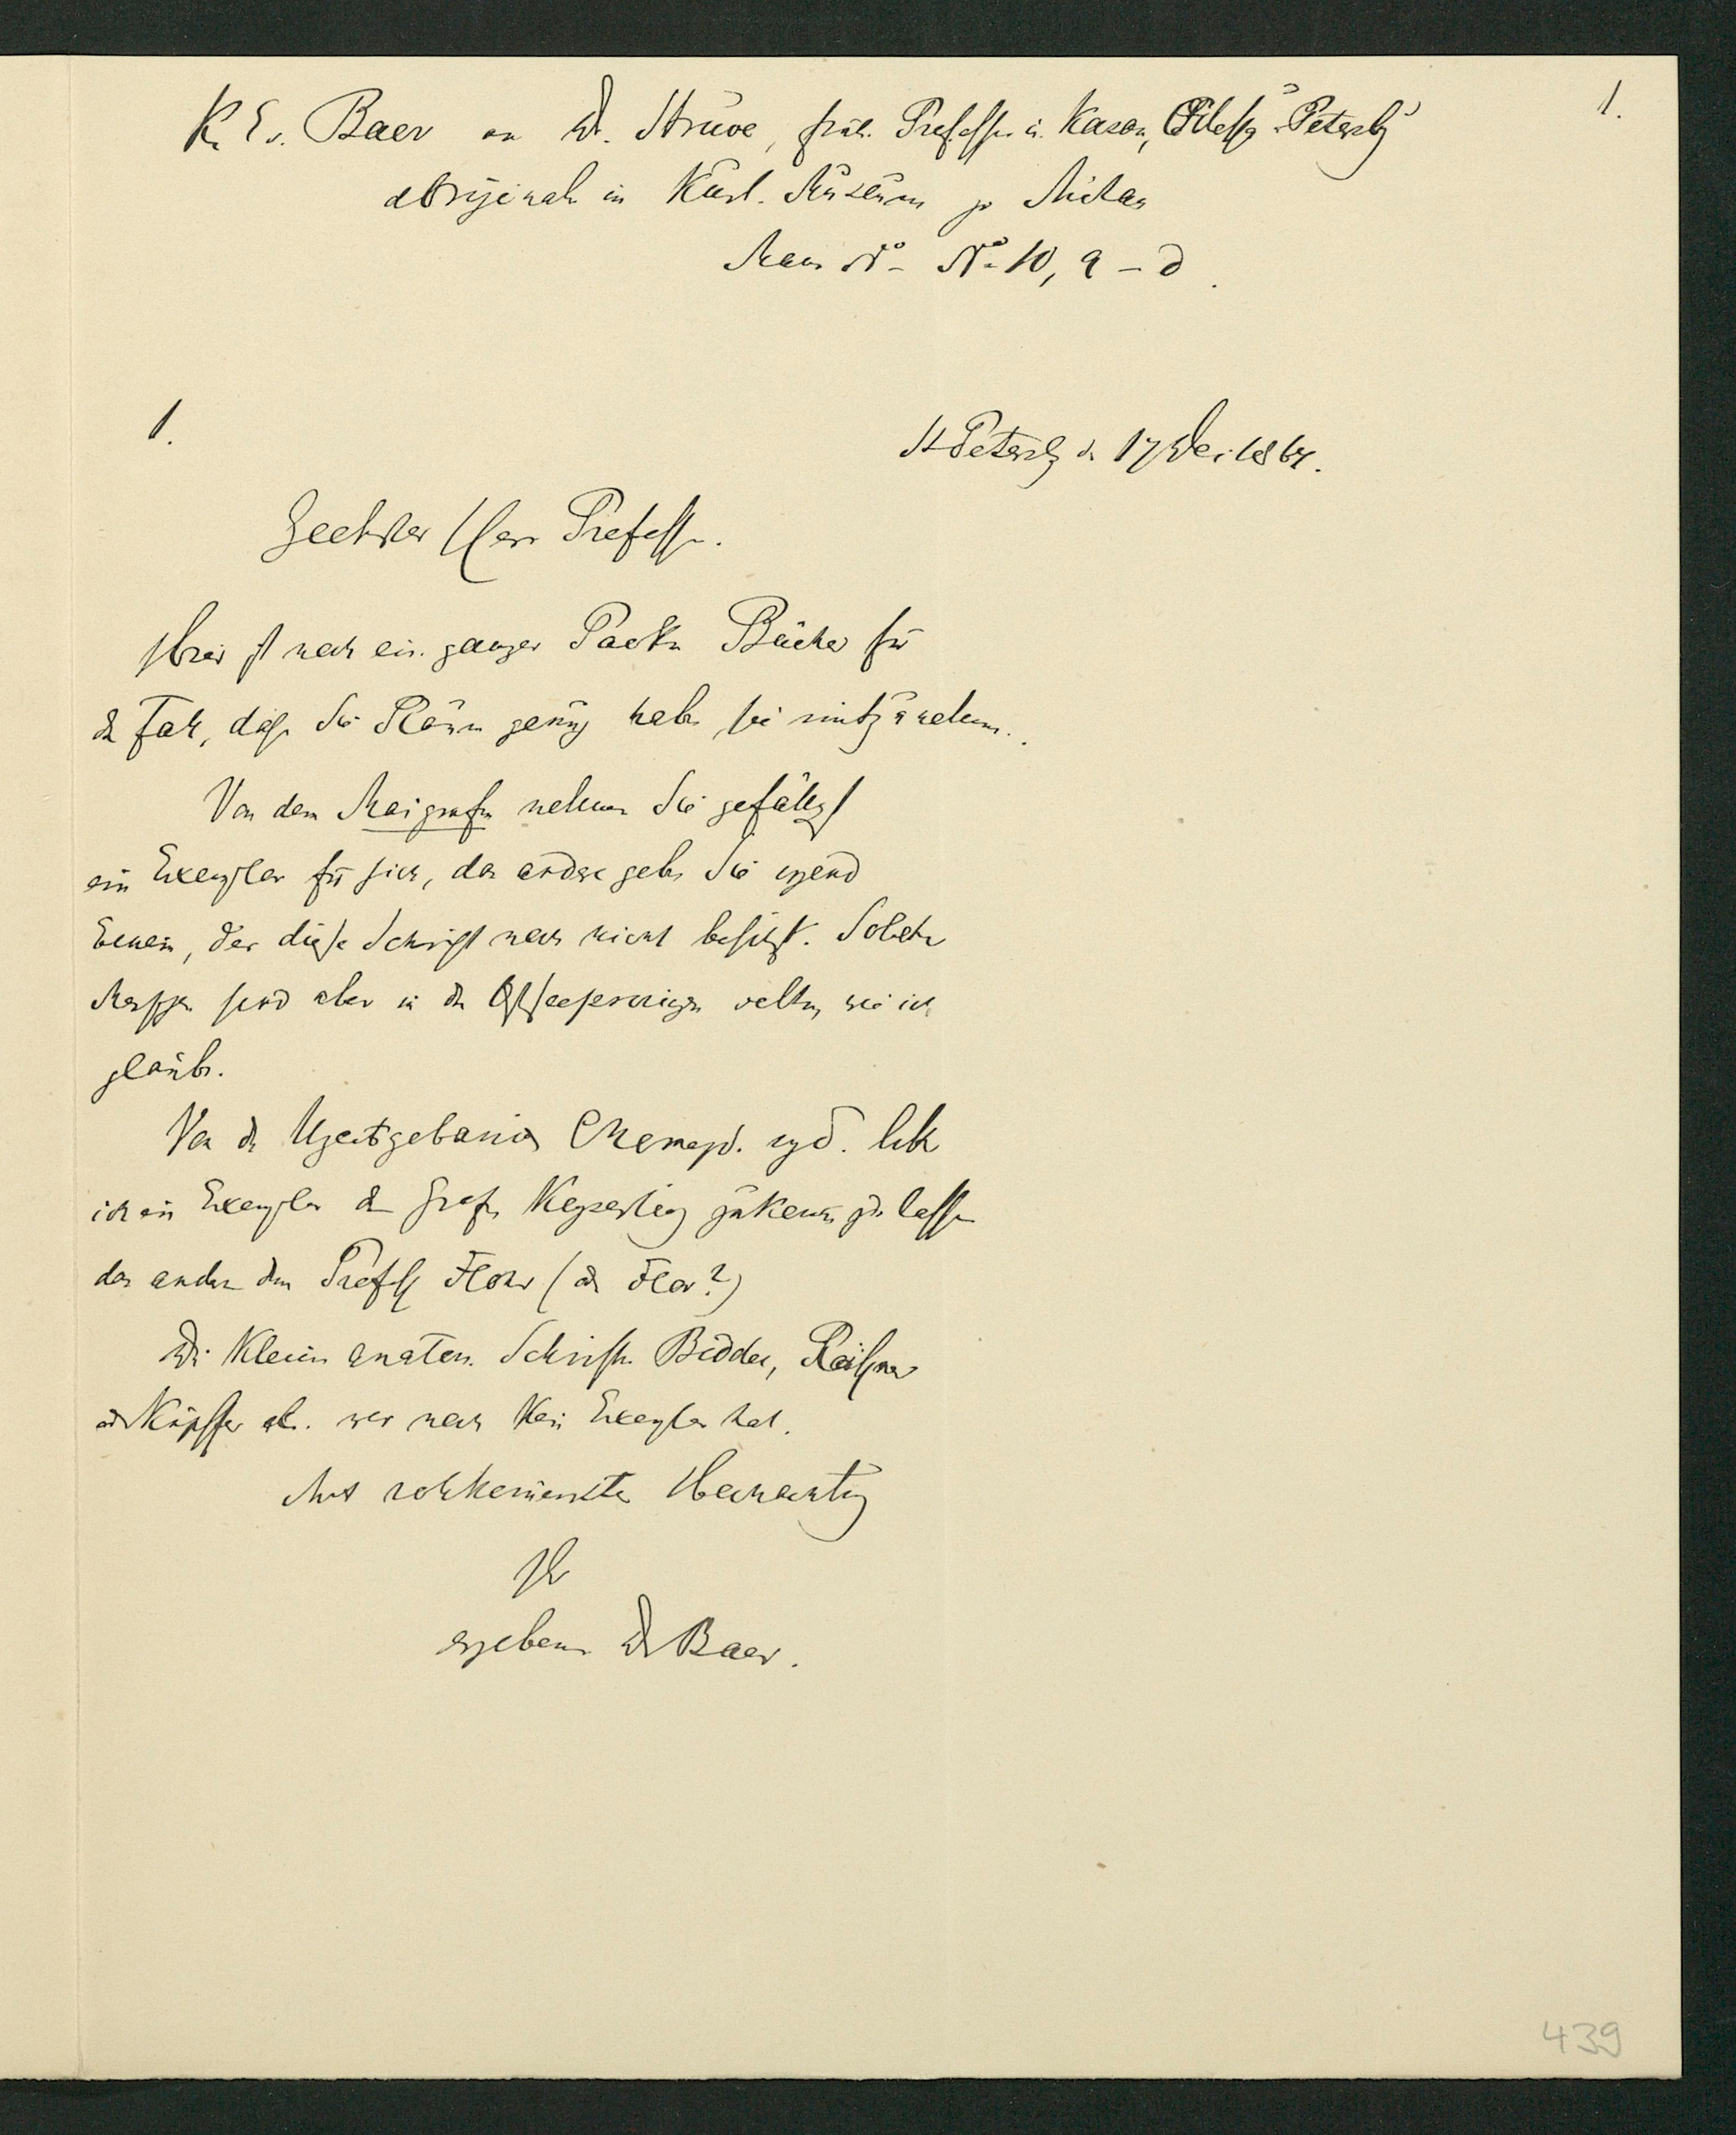 1.
K. E. v. Baer an Dr. Struve, früh. Professor in Kasan, Odessa, Petersbg
Originale im Kurl. Museum zu Mitau
No 10, a – d.
1.
St Petersbg d. 17 1864.
Geehrter Herr Professor.
Hier ist noch ein ganzer Packen Bücher für
den Fall, dass Sie Raum genug haben sie mitzunehmen.
Von dem nehmen Sie gefälligst
ein Exemplar für sich, das andere geben Sie irgend
Einem, der diese Schrift noch nicht besitzt. Solche
sind aber in den Ostseeprovinzen selten, wie ich
glaube.
Von den
ich ein Exemplar dem Grafen Keyserling zukommen zu lassen
das andere dem Profess Flor (od Flor?)
Die kleinen anatom. Schriften Bidder, Reissner
od Kupffer wer noch kein Exemplar hat.
Mit vollkommenster Hochachtung
Ihr
ergebener Dr Baer.
439